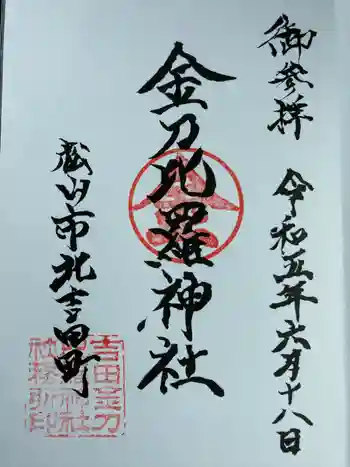 御参拝
令和五年六月十八日
金刀比羅神社
歳山市北吉田町
吉田金刀
比羅神社
社務所印